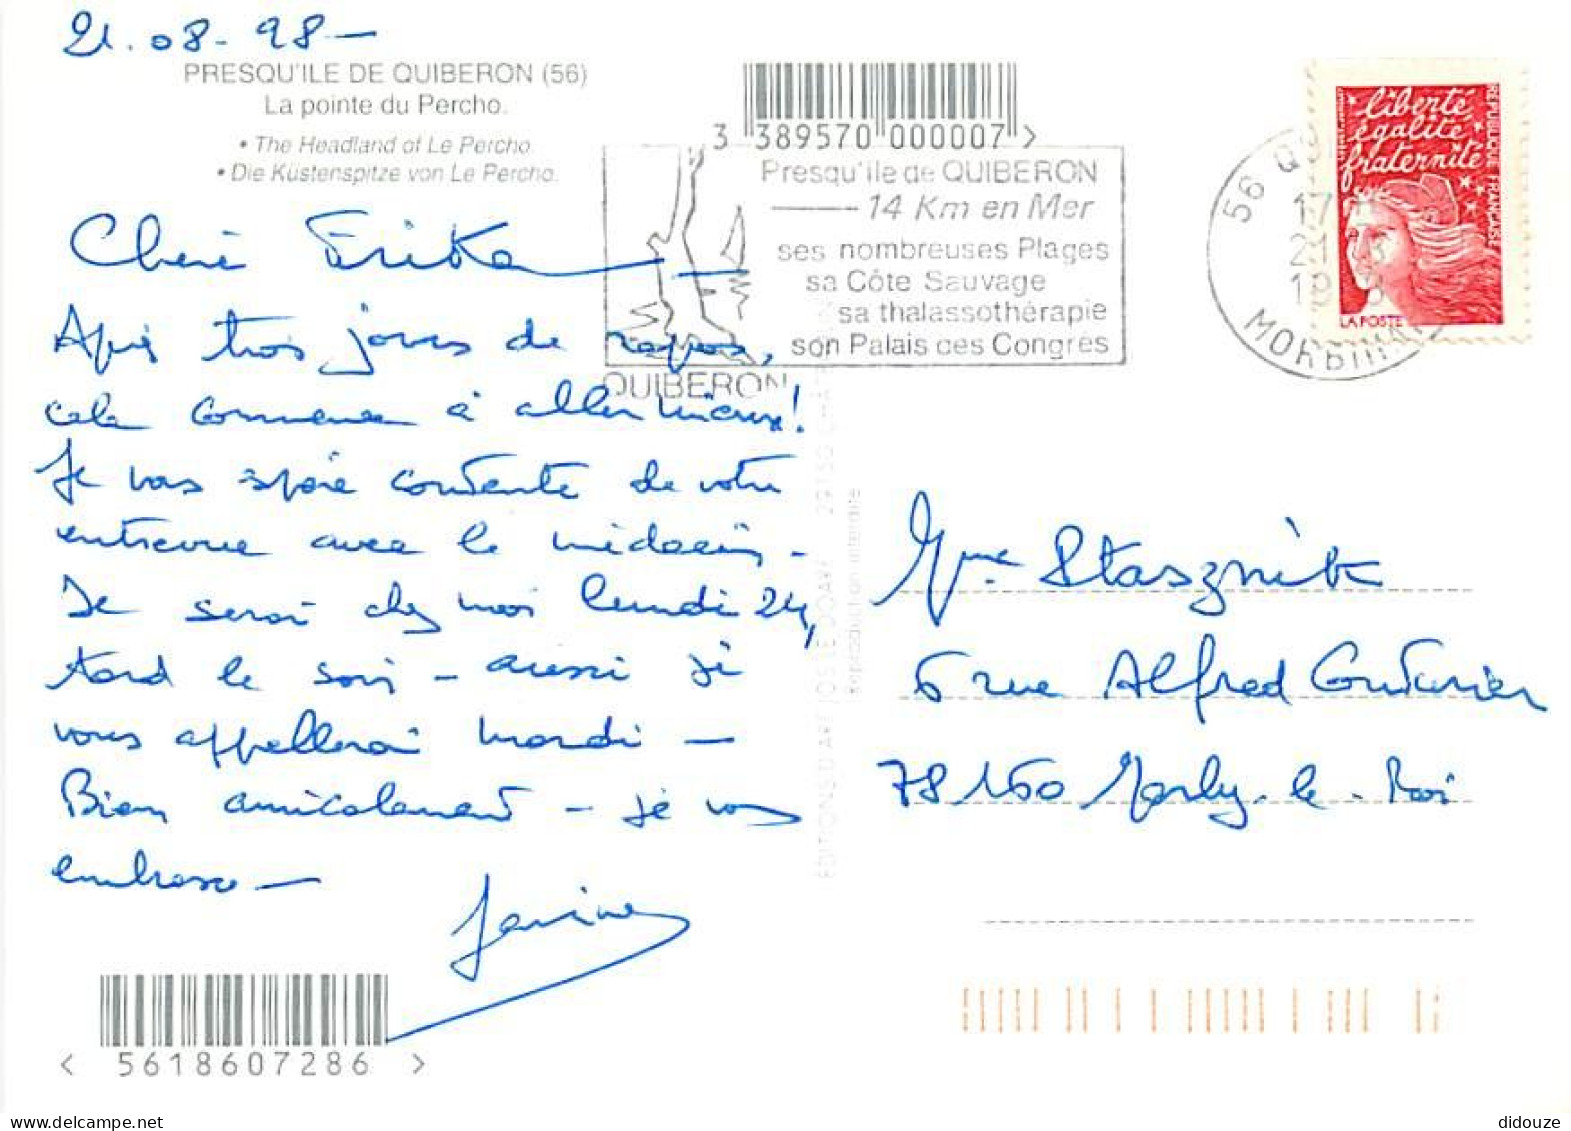 21.08-98-
PRESQU'ILE DE QUIBERON (56)
La pointe du Percho.
• The Headland of Le Percho.
• Die Küstenspitze von Le Percho.
3 389570 000007 >
Presqu'ile de QUIBERON
14 Km en Mer
ses nombreuses Plages
sa Côte Sauvage
sa thalassothérapie
son Palais des Congrès
QUIBERON
56
MORBIHAN
liberté
égalité
fraternité
REPUBLIQUE FRANÇAISE
LA POSTE
Chère Erika
Après trois jours de repos,
cela commence à aller mieux!
Je vous espère contente de votre
entrevue avec le médecin-
Je serai chez moi lundi 24,
tard le soir - aussi je
vous appellerai mardi -
Bien amicalement - je vous
embrasse -
Janine
EDITIONS D'ART JOS LE DOARE 29150
reproduction interdite
Mme Stasznik
6 rue Alfred Couturier
78160 Marly-le-Roi
< 5618607286 >
didouze